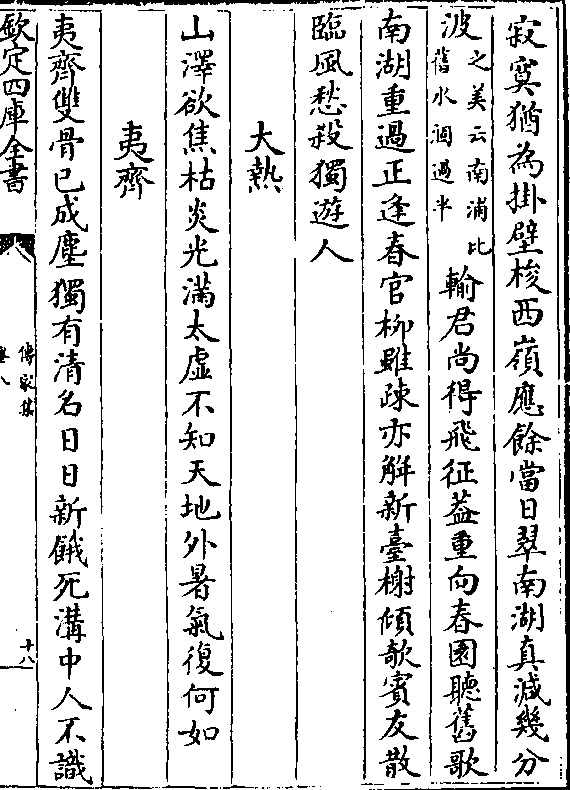 寂寞猶為掛壁梭西嶺應餘當日翠南湖真減幾分
波之美云南浦比舊水涸過半輸君尚得飛征蓋重向春園聽舊歌
南湖重過正逢春官柳雖疎亦解新臺榭傾欹賓友散
臨風愁殺獨遊人
大熱
山澤欲焦枯炎光滿太虛不知天地外暑氣復何如
夷齊
夷齊雙骨已成塵獨有清名日日新餓死溝中人不識
欽定四庫全書
傳家集
卷八
十八